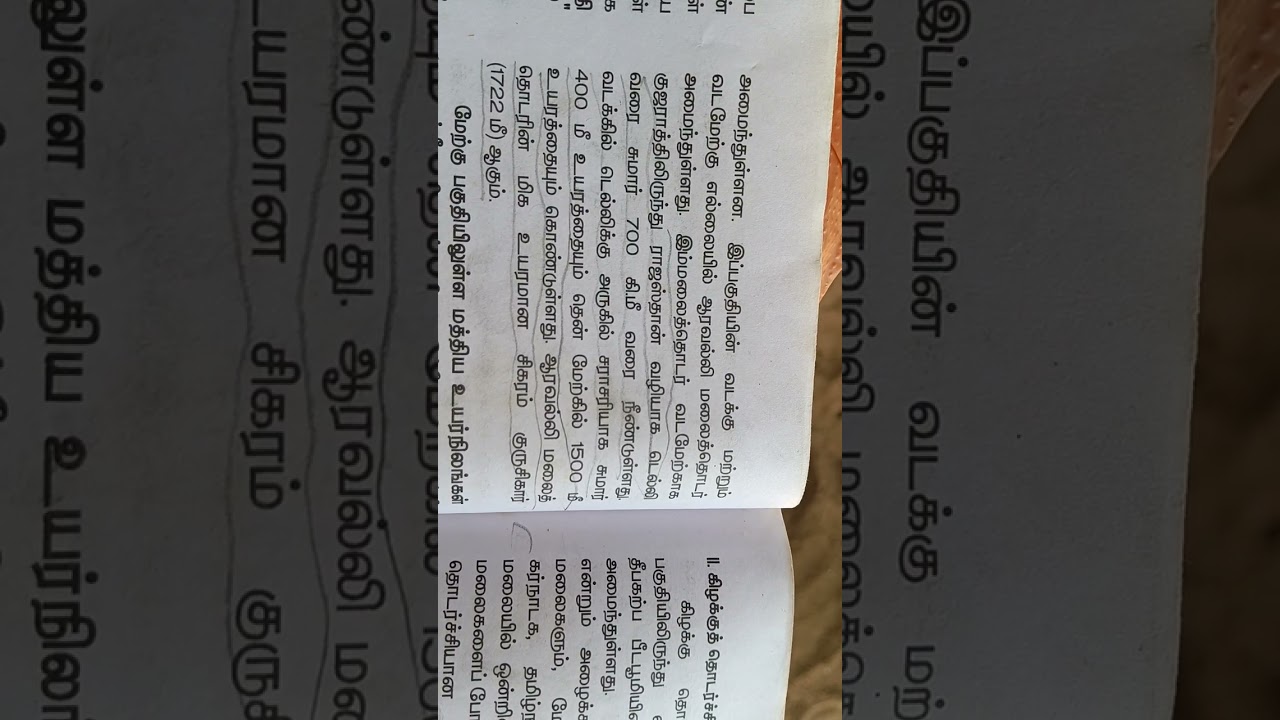 அமைந்துள்ளன. இப்பகுதியின் வடக்கு மற்றும்
வடமேற்கு எல்லையில் ஆரவல்லி மலைத்தொடர்
அமைந்துள்ளது. இம்மலைத்தொடர் வடமேற்காக
குஜராத்திலிருந்து ராஜஸ்தான் வழியாக டெல்லி
வரை சுமார் 700 கி.மீ வரை நீண்டுள்ளது.
வடக்கில் டெல்லிக்கு அருகில் சராசரியாக சுமார்
400 மீ உயரத்தையும் தென் மேற்கில் 1500 மீ
உயரத்தையும் கொண்டுள்ளது. ஆரவல்லி மலைத்
தொடரின் மிக உயரமான சிகரம் குருசிகார்
(1722 மீ) ஆகும்.
மேற்கு பகுதியிலுள்ள மத்திய உயர்நிலங்கள்
II. கிழக்குத் தொடர்ச்சி
கிழக்கு தொ
பகுதியிலிருந்து
தீபகற்ப பீடபூமியில்
அமைந்துள்ளது.
என்றும் அழைக்க
மலைகளும், மே
கர்நாடக, தமிழ்ந
மலையில் ஒன்றி
மலைகளைப் போ
தொடர்ச்சியான